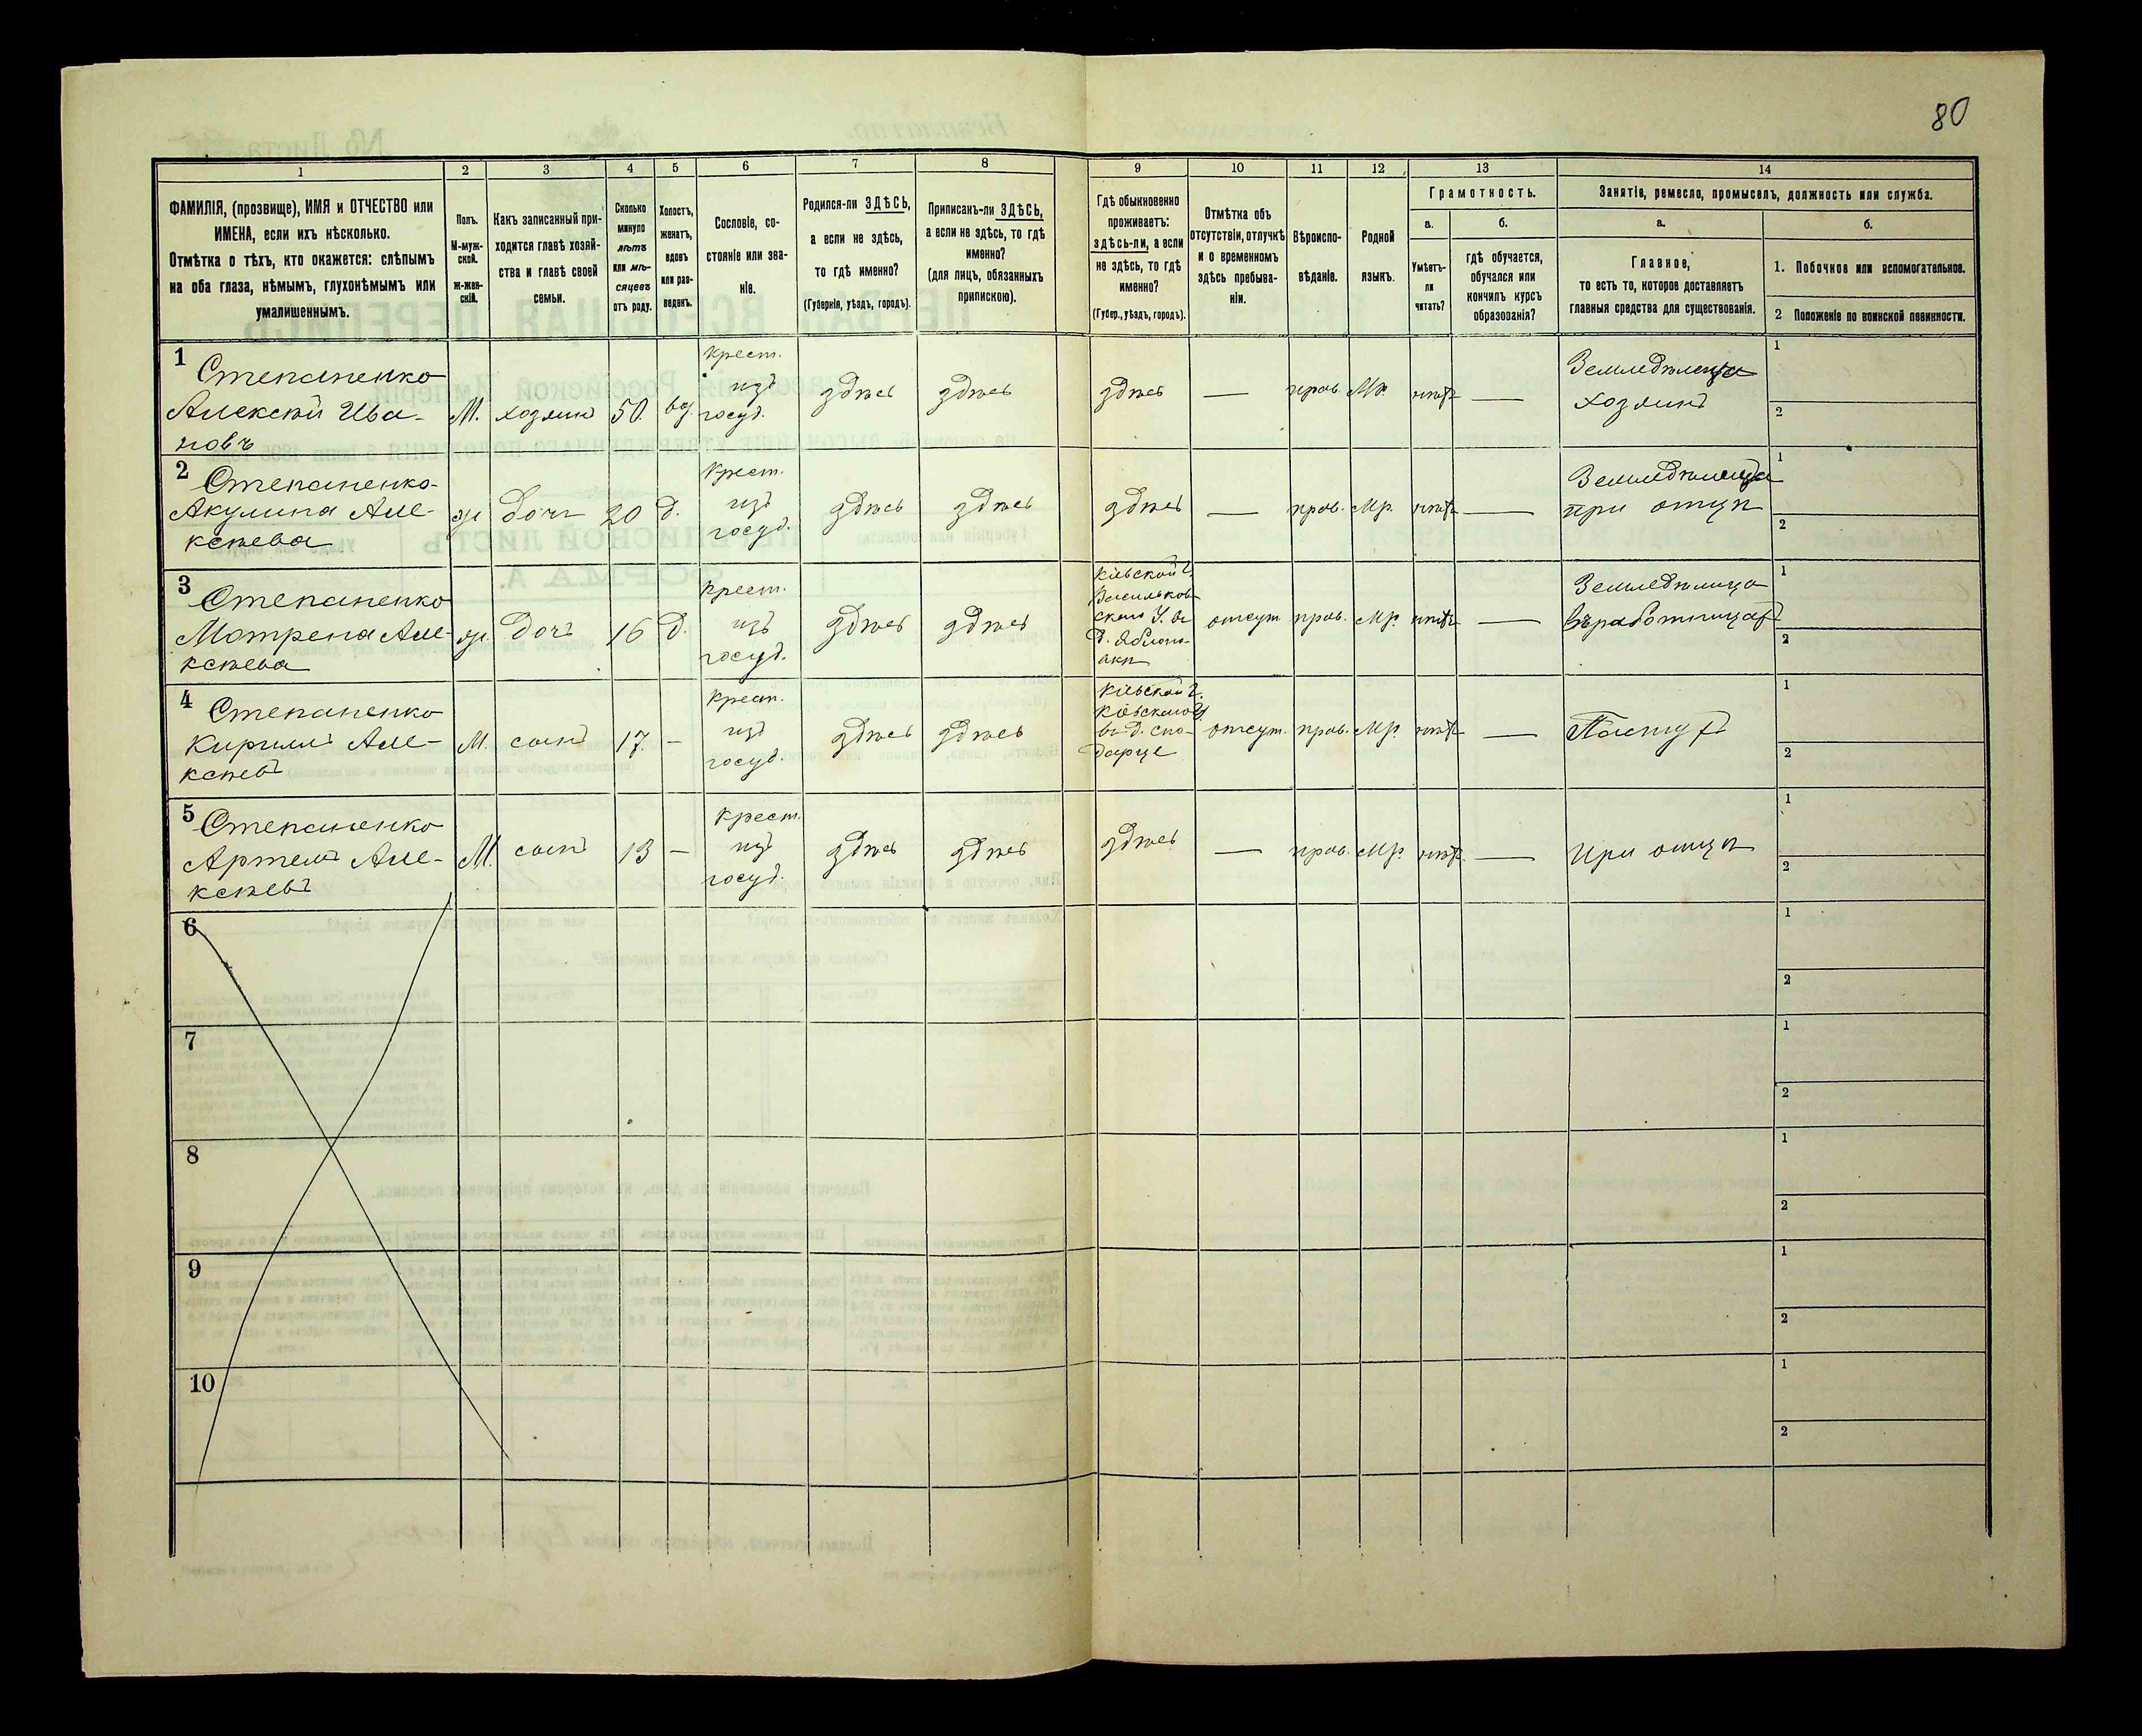 80
1
2
3
4
5
6
7
8
9
10
11
12
13
14
ФАМИЛІЯ, (прозвище), ИМЯ и ОТЧЕСТВО или
ИМЕНА, если ихъ нѣсколько.
Отмѣтка о тѣхъ, кто окажется: слѣпымъ
на оба глаза, нѣмымъ, глухонѣмымъ или
умалишеннымъ.
Полъ.
М-муж-
ской.
Ж-жен-
скій.
Какъ записанный при-
ходится главѣ хозяй-
ства и главѣ своей
семьи.
Сколько
минуло
лѣтъ
или мѣ-
сяцевъ
отъ роду.
Холостъ,
женатъ,
вдовъ
или раз-
веденъ.
Сословіе, со-
стояніе или зва-
ніе.
Родился-ли ЗДѢСЬ,
а если не здѣсь,
то гдѣ именно?
(Губернія, уѣздъ, городъ).
Приписанъ-ли ЗДѢСЬ,
а если не здѣсь, то гдѣ
именно?
(для лицъ, обязанныхъ
припискою).
Гдѣ обыкновенно
проживаетъ:
здѣсь-ли, а если
не здѣсь, то гдѣ
именно?
(Губер., уѣздъ, городъ).
Отмѣтка объ
отсутствіи, отлучкѣ
и о временномъ
здѣсь пребыва-
ніи.
Вѣроиспо-
вѣданіе.
Родной
языкъ.
Грамотность.
а.
Умѣетъ-
ли
читать?
б.
гдѣ обучается,
обучался или
кончилъ курсъ
образованія?
Занятіе, ремесло, промыселъ, должность или служба.
а.
Главное,
то есть то, которое доставляетъ
главныя средства для существованія.
б.
1. Побочное или вспомогательное.
2 Положеніе по воинской повинности.
1
Степаненко
Алексѣй Ива-
новъ
М.
хозяинъ
50.
вд.
крест.
изъ
госуд.
здѣсь
здѣсь
здѣсь
—
прав.
Мр.
нѣтъ
—
Земледѣлецъ
хозяинъ
1
2
2
Степаненко
Акулина Але-
ксѣева
ж
дочь
20
д.
крест.
изъ
госуд.
здѣсь
здѣсь
здѣсь
—
прав.
Мр.
нѣтъ
—
при отцѣ
1
2
3
Степаненко
Матрена Але-
ксѣева
ж.
дочь
16
д.
крест.
изъ
госуд.
здѣсь
здѣсь
Кіевской г.
Васильков-
скаго У. въ
отсут.
прав.
Мр.
нѣтъ
—
Земледѣлица
въ работницахъ
1
2
4
Степаненко
Кирилъ Але-
ксѣевъ
М.
сынъ
17.
—
крест.
изъ
госуд.
здѣсь
здѣсь
Кіевской г.
Кіевскаго у.
отсут.
прав.
Мр.
нѣтъ
—
Пастухъ
1
2
5
Степаненко
Артемъ Але-
ксѣевъ
М.
сынъ
13
—
крест.
изъ
госуд.
здѣсь
здѣсь
здѣсь
—
прав.
Мр.
нѣтъ
—
При отцѣ
1
2
6
1
2
7
1
2
8
1
2
9
1
2
10
1
2